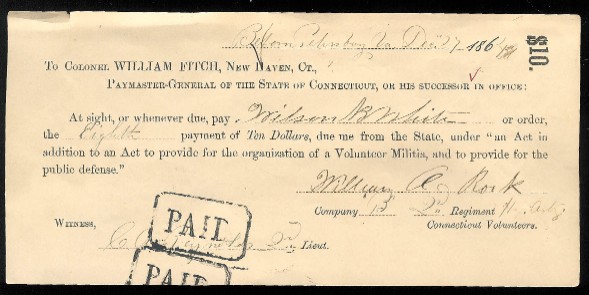 Petersburg Va Dec 27 1864
$10.
TO COLONEL WILLIAM FITCH, NEW HAVEN, CT.,
PAYMASTER-GENERAL OF THE STATE OF CONNECTICUT, OR HIS SUCCESSOR IN OFFICE:
At sight, or whenever due, pay Wilson B White or order,
the Eighth payment of Ten Dollars, due me from the State, under "an Act in
addition to an Act to provide for the organization of a Volunteer Militia, and to provide for the
public defense."
William A Rork
Company B 2nd Regiment H. Arty
Connecticut Volunteers.
WITNESS,
Lieut.
PAID
PAID